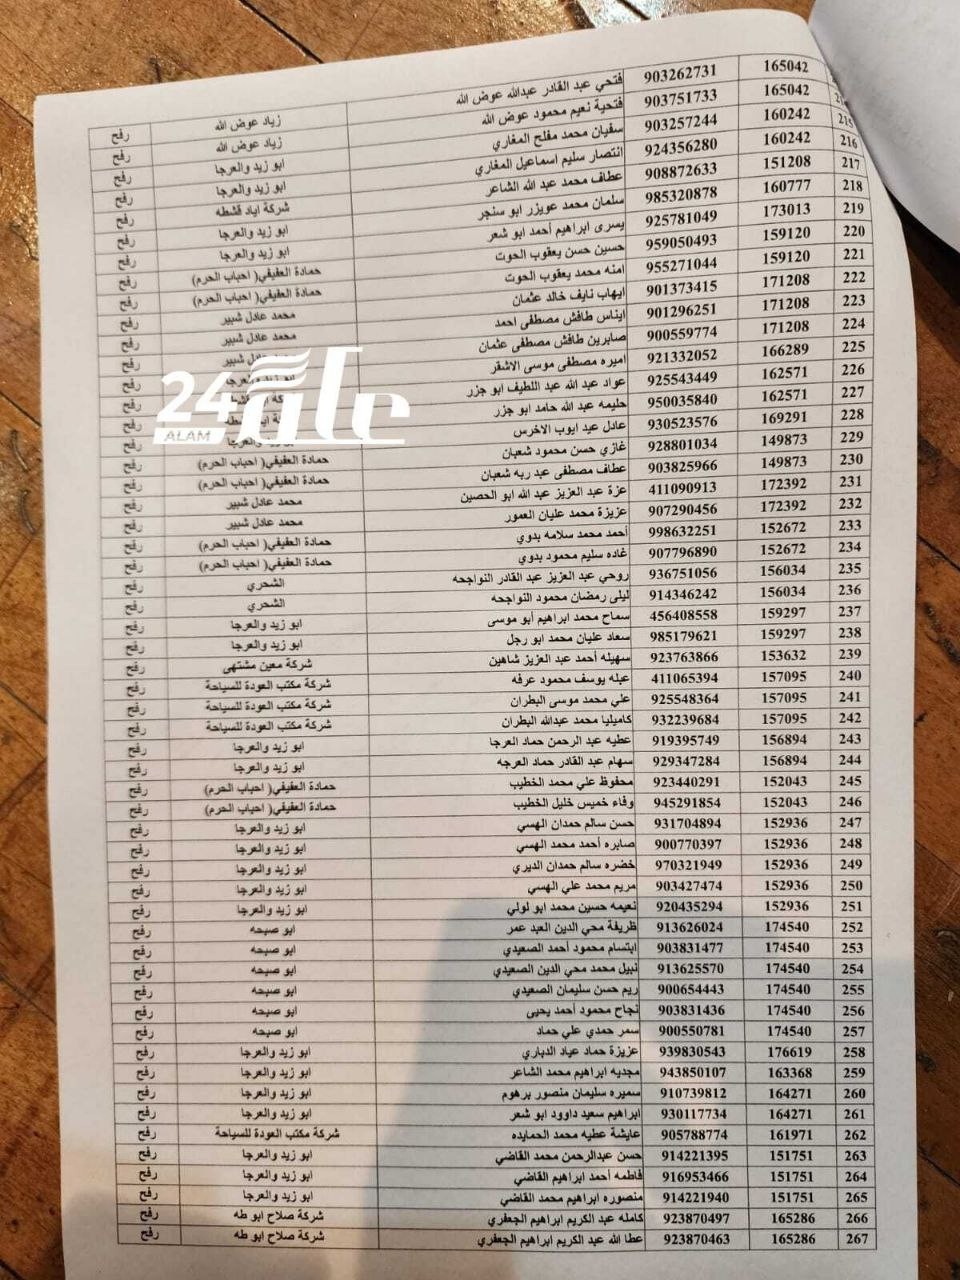 165042 903262731 فتحي عبد القادر عبدالله عوض الله زياد عوض الله رفح
165042 903751733 فتحية نعيم محمود عوض الله زياد عوض الله رفح
215 160242 903257244 سفيان محمد مفلح المغاري ابو زيد والعرجا رفح
216 160242 924356280 انتصار سليم اسماعيل المغاري ابو زيد والعرجا رفح
217 151208 908872633 عطاف محمد عبد الله الشاعر شركة اياد قشطه رفح
218 160777 985320878 سلمان محمد عويزر ابو سنجر ابو زيد والعرجا رفح
219 173013 925781049 يسرى ابراهيم أحمد ابو شعر ابو زيد والعرجا رفح
220 159120 959050493 حسين حسن يعقوب الحوت حمادة العفيفي( احباب الحرم) رفح
221 159120 955271044 امنه محمد يعقوب الحوت حمادة العفيفي( احباب الحرم) رفح
222 171208 901373415 ايهاب نايف خالد عثمان محمد عادل شبير رفح
223 171208 901296251 ايناس طافش مصطفى احمد محمد عادل شبير رفح
224 171208 900559774 صابرين طافش مصطفى عثمان محمد عادل شبير رفح
225 166289 921332052 اميره مصطفى موسى الاشقر
226 162571 925543449 عواد عبد الله عبد اللطيف ابو جزر
227 162571 950035840 حليمه عبد الله حامد ابو جزر
228 169291 930523576 عادل عيد ايوب الاخرس
24
ALAM
229 149873 928801034 غازي حسن محمود شعبان حمادة العفيفي( احباب الحرم) رفح
230 149873 903825966 عطاف مصطفى عبد ربه شعبان حمادة العفيفي( احباب الحرم) رفح
231 172392 411090913 عزة عبد العزيز عبد الله ابو الحصين محمد عادل شبير رفح
232 172392 907290456 عزيزة محمد عليان العمور محمد عادل شبير رفح
233 152672 998632251 أحمد محمد سلامه بدوي حمادة العفيفي( احباب الحرم) رفح
234 152672 907796890 غاده سليم محمود بدوي حمادة العفيفي( احباب الحرم) رفح
235 156034 936751056 روحي عبد العزيز عبد القادر النواجحه الشحري رفح
236 156034 914346242 ليلى رمضان محمود النواجحه الشحري رفح
237 159297 456408558 سماح محمد ابراهيم أبو موسى ابو زيد والعرجا رفح
238 159297 985179621 سعاد عليان محمد ابو رجل ابو زيد والعرجا رفح
239 153632 923763866 سهيله أحمد عبد العزيز شاهين شركة معين مشتهى رفح
240 157095 411065394 عبله يوسف محمود عرفه شركة مكتب العودة للسياحة رفح
241 157095 925548364 علي محمد موسى البطران شركة مكتب العودة للسياحة رفح
242 157095 932239684 كاميليا محمد عبدالله البطران شركة مكتب العودة للسياحة رفح
243 156894 919395749 عطيه عبد الرحمن حماد العرجا ابو زيد والعرجا رفح
244 156894 929347284 سهام عبد القادر حماد العرجه ابو زيد والعرجا رفح
245 152043 923440291 محفوظ علي محمد الخطيب حمادة العفيفي( احباب الحرم) رفح
246 152043 945291854 وفاء خميس خليل الخطيب حمادة العفيفي( احباب الحرم) رفح
247 152936 931704894 حسن سالم حمدان الهسي ابو زيد والعرجا رفح
248 152936 900770397 صابره أحمد محمد الهسي ابو زيد والعرجا رفح
249 152936 970321949 خضره سالم حمدان الديري ابو زيد والعرجا رفح
250 152936 903427474 مريم محمد علي الهسي ابو زيد والعرجا رفح
251 152936 920435294 نعيمه حسين محمد ابو لولي ابو زيد والعرجا رفح
252 174540 913626024 ظريفة محي الدين العبد عمر ابو صبحه رفح
253 174540 903831477 ابتسام محمود أحمد الصعيدي ابو صبحه رفح
254 174540 913625570 نبيل محمد محي الدين الصعيدي ابو صبحه رفح
255 174540 900654443 ريم حسن سليمان الصعيدي ابو صبحه رفح
256 174540 903831436 نجاح محمود أحمد يحيى ابو صبحه رفح
257 174540 900550781 سمر حمدي علي حماد ابو صبحه رفح
258 176619 939830543 عزيزة حماد عياد الدباري ابو زيد والعرجا رفح
259 163368 943850107 مجديه ابراهيم محمد الشاعر ابو زيد والعرجا رفح
260 164271 910739812 سميره سليمان منصور برهوم ابو زيد والعرجا رفح
261 164271 930117734 ابراهيم سعيد داوود ابو شعر ابو زيد والعرجا رفح
262 161971 905788774 عايشة عطيه محمد الحمايده شركة مكتب العودة للسياحة رفح
263 151751 914221395 حسن عبدالرحمن محمد القاضي ابو زيد والعرجا رفح
264 151751 916953466 فاطمه أحمد ابراهيم القاضي ابو زيد والعرجا رفح
265 151751 914221940 منصوره ابراهيم محمد القاضي ابو زيد والعرجا رفح
266 165286 923870497 كامله عبد الكريم ابراهيم الجعفري شركة صلاح ابو طه رفح
267 165286 923870463 عطا الله عبد الكريم ابراهيم الجعفري شركة صلاح ابو طه رفح